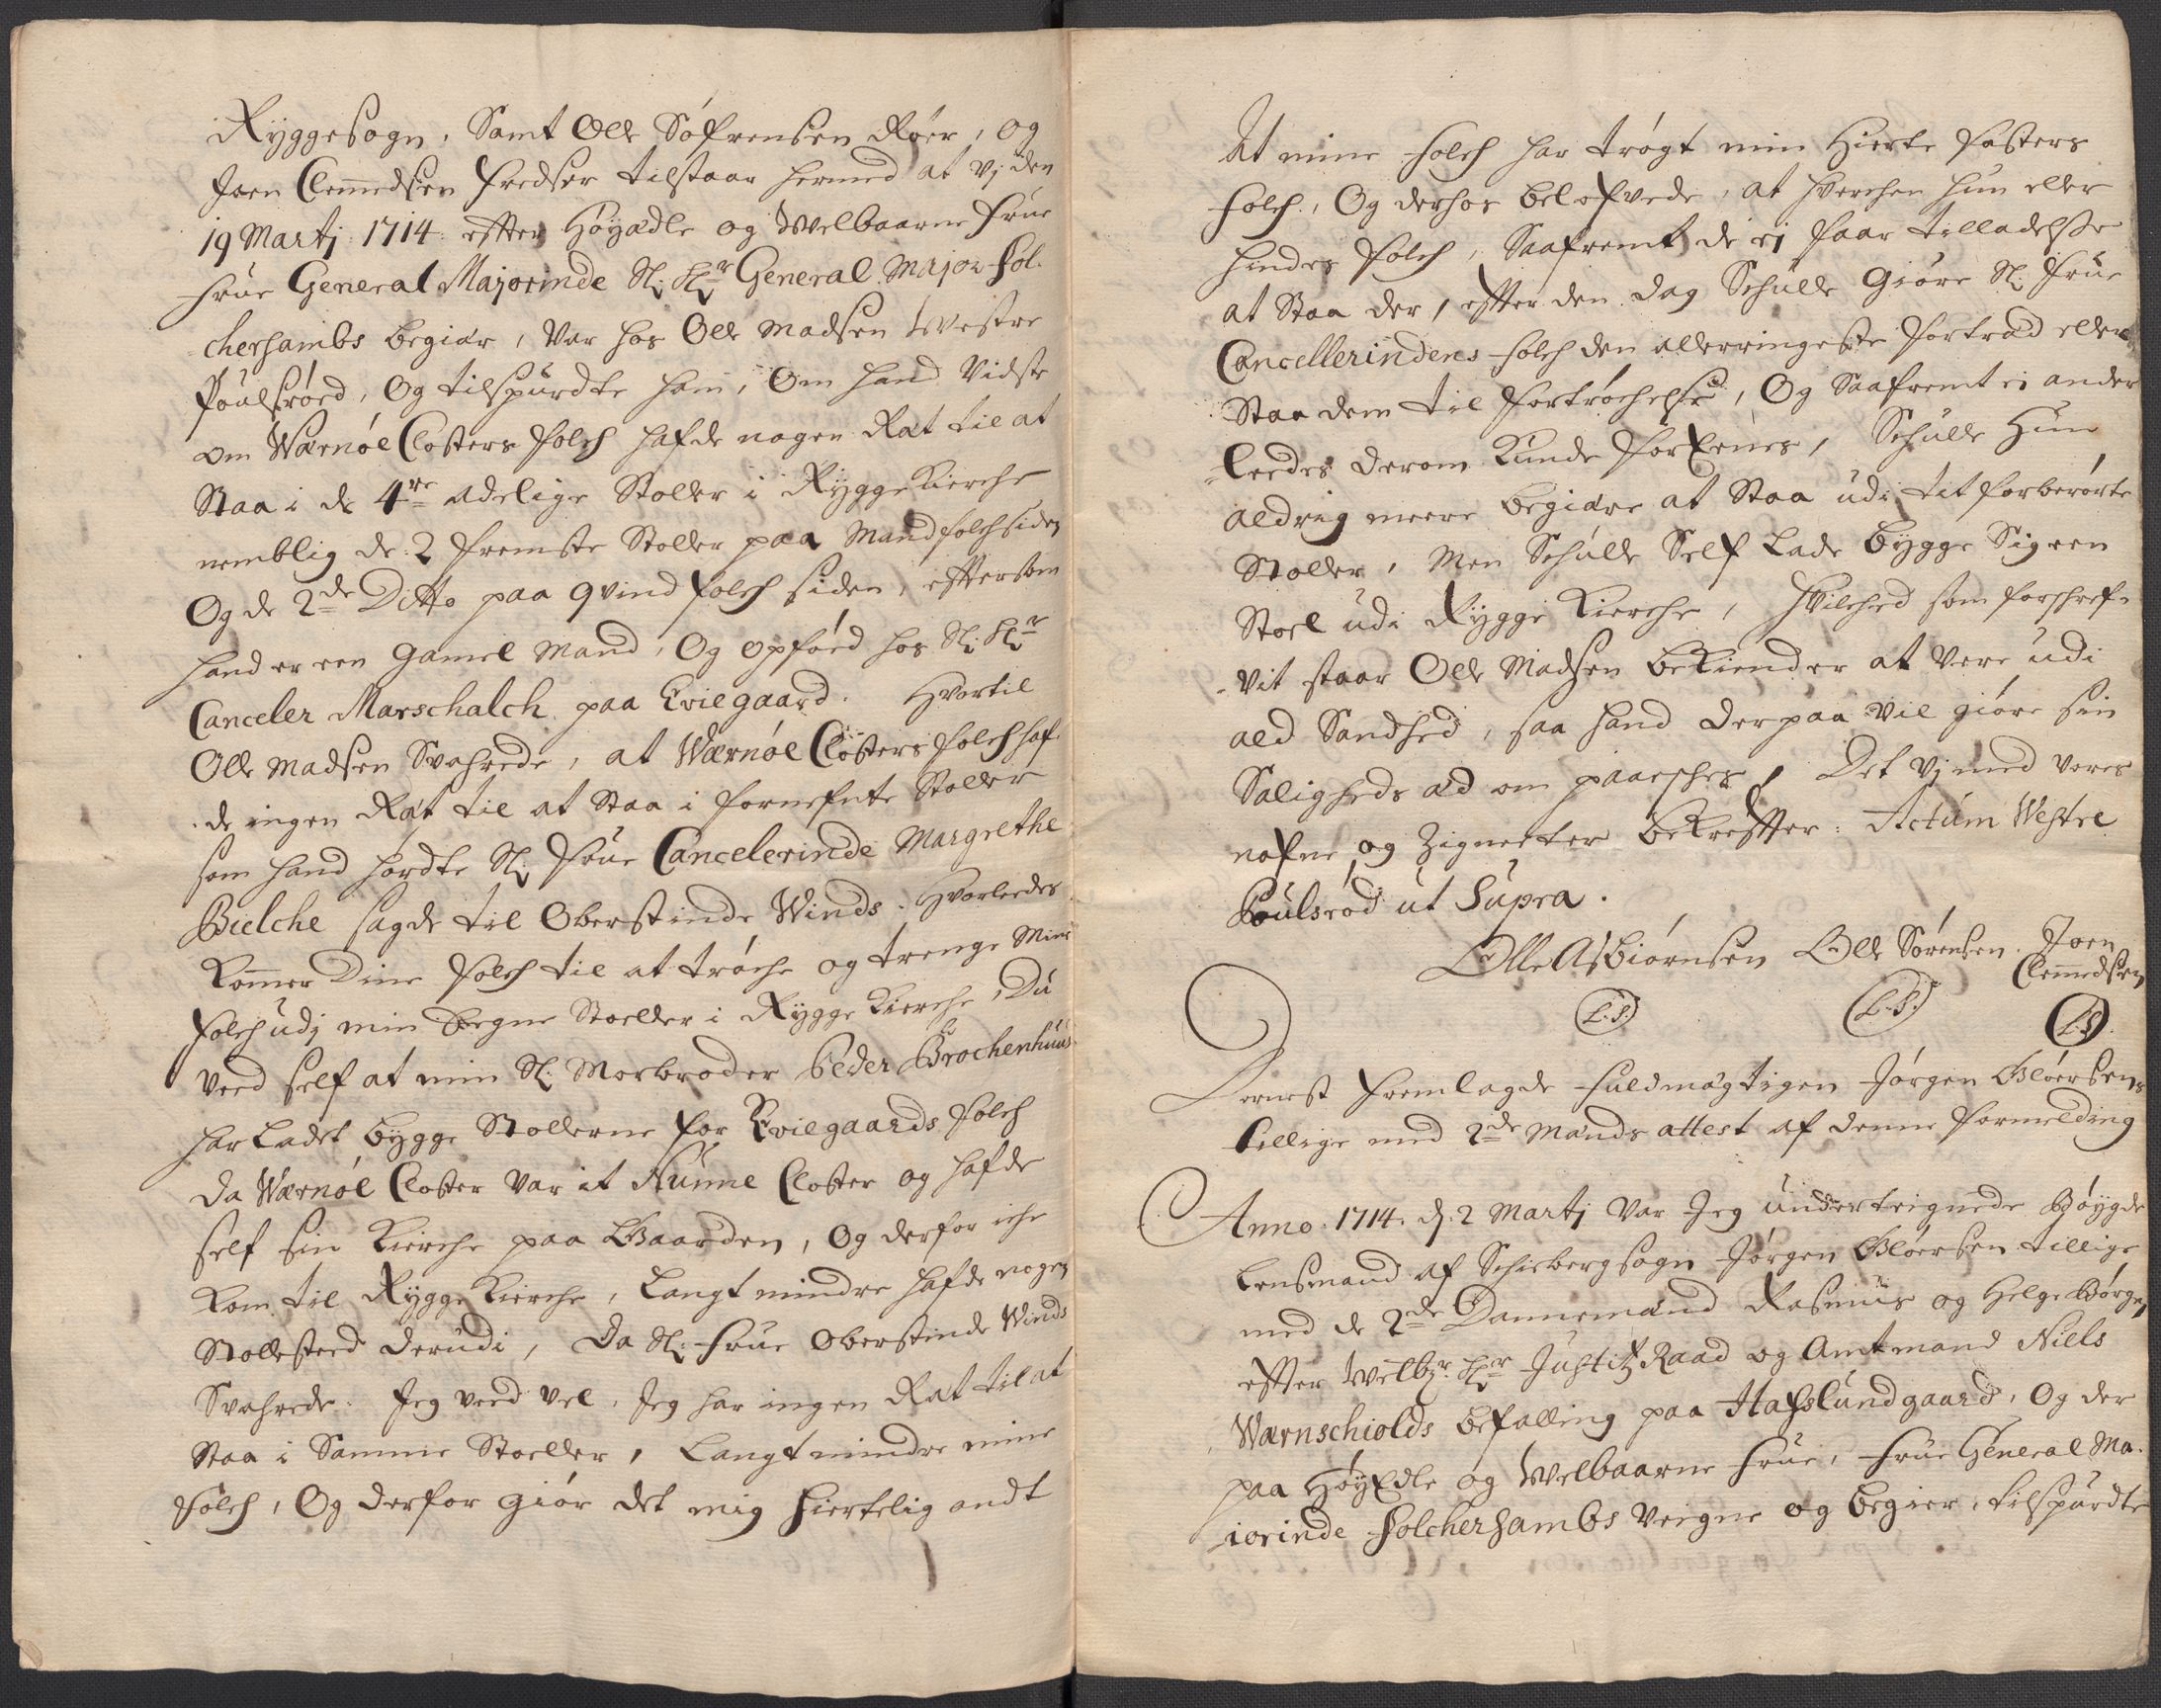 Ryggesogn, Samt Olle Søfrensen Røer, og
Joen Clemedsen Fredsøe tilstaar hermed at vj den
19 Martj 1714. effter Høyædle og Welbaarne Frue
Frue General Majorinde Sl: Hr: General Major Fol-
chersambs begiær, var hos Olle Madsen Westre
Poulsrøed, Og tilspurdte ham, Om hand Vidste
om Wærnøe Closters Folch hafde nogen Ræt til at
Staa i de 4re adelige Stoller i Rygge Kierche
nemblig de 2 fremste Stoller paa Mandfolchsiden
Og de 2de Ditto paa qvindfolch siden, effterSom
hand er een gamel Mand, Og opføed hos Sl: Hr:
Canceler Marschalch paa Eviegaard. Hvortil
Olle Madsen Svahrede, at Wærnøe Closters Folch haf-
de ingen Ræt til at Staa i fornefnte Stoller
som hand hørdte Sl: Frue Cancelerinde Margrethe
Bielche sagde til Oberstinde Winds. Hvorledes
Kommer Dine Folch til at trøche og trenge Mine
Folch udj min Eegne Stoeller i Rygge Kierche, Du
veed self at min Sl: Morbroder Peder Brochenhuus
har Ladet bygge Stollerne for Evilgaards Folch
da Wærnøe Closter var it Nunne Closter og hafde
self sin Kierche paa Gaarden, Og derfor iche
Kom til Rygge Kierche, Langt mindre hafde nogen
Stollested derudi, Da Sl: Frue Oberstinde Winds
Svahrede. Jeg veed vel, Jeg har ingen Ræt til at
Staa i Samme Stoeller, Langt mindre mine
Folch, Og derfor giør det mig hiertelig ondt
At mine Folch har trøgt min Hierte Søsters
Folch, Og derhos belofvede, at hverchen hun eller
hindes Folch, Saafremt de ej faar tilladelsse
at Staa der, effter den dag Schulle Giøre Sl: Frue
Cancellerindens Folch den allerringeste fortræd eller
Staa dem til fortrøchelse, Og Saafremt ei ander
leedes derom Kunde forEenes, Schulle Hun
aldrig meere begiære at Staa udi tit forberørte
Stoller, Men Schulle Self Lade bygge Sig een
Stoel udi Rygge Kierche, Hvilched som forschref-
vit staar Olle Madsen beKiender at vere udi
ald Sandhed, saa hand derpaa vil giøre sin
Saligheds æd om paaeschis, Det vj med vores
nafne og Zigneeter beKreffter: Actum Westre
Poulsrød ut Supra.
Olle Asbiørnsen Olle Sørensen Joen
Clemedsen
(L.S.) (L.S.) (L.S.)
Dernest fremlagde fuldmægtigen Jørgen Gløersens
tillige med 2de Mænds attest af denne formelding
Anno 1714. d. 2 Martj var Jeg underteignede Bøygde
Lensmand af Schiebergsogn Jørgen Gløersen tillige
med de 2de Dannemænd Rasmus og Helge Børge,
effter Welbr: Hr: Justitz Raad og Amtmand Niels
Wærnschiolds befalling paa Hafslundgaard, Og der
paa HøyEdle og Welbaarne Frue, Frue General Ma-
iorinde Folchersambs veigne og begier, tilspurdte